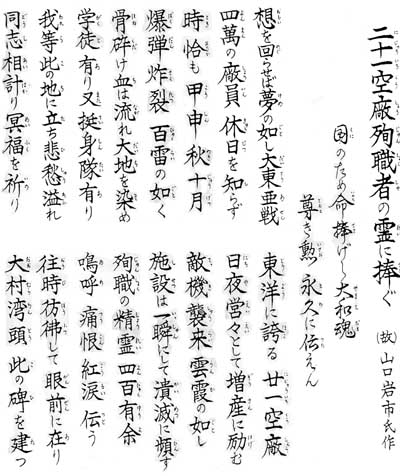 二十一空廠殉職者の霊に捧ぐ
(故)山口岩市氏作
国のため命捧げし大和魂
尊き勲 永久に伝えん
想を回らせば夢の如し大東亜戦
東洋に誇る 廿一空廠
四萬の廠員 休日を知らず
日夜営々として増産に励む
時恰も 甲申 秋 十月
敵機襲来 雲霞の如し
爆弾炸裂 百雷の如く
施設は一瞬にして潰滅に頻す
骨砕け血は流れ大地を染め
殉職の精霊 四百有余
学徒有り又挺身隊有り
嗚呼 痛恨 紅涙 伝う
我等此の地に立ち悲愁溢れ
往時彷彿して 眼前に在り
同志相計り冥福を祈り
大村湾頭 此の碑を建つ